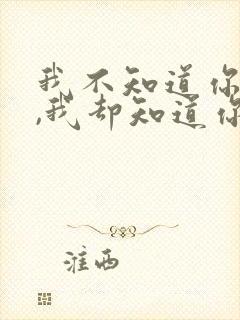 我不知道你
,我却知道你
淮西